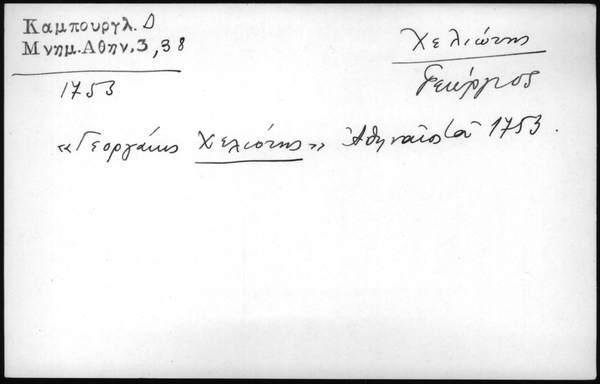 Καμπουργλ. Δ
Μνημ. Αθην. 3, 38
1753
Χελιώτης
Γεώργιος
«Γεοργάκις Χελιότης» Ἀθηναῖος 1753.